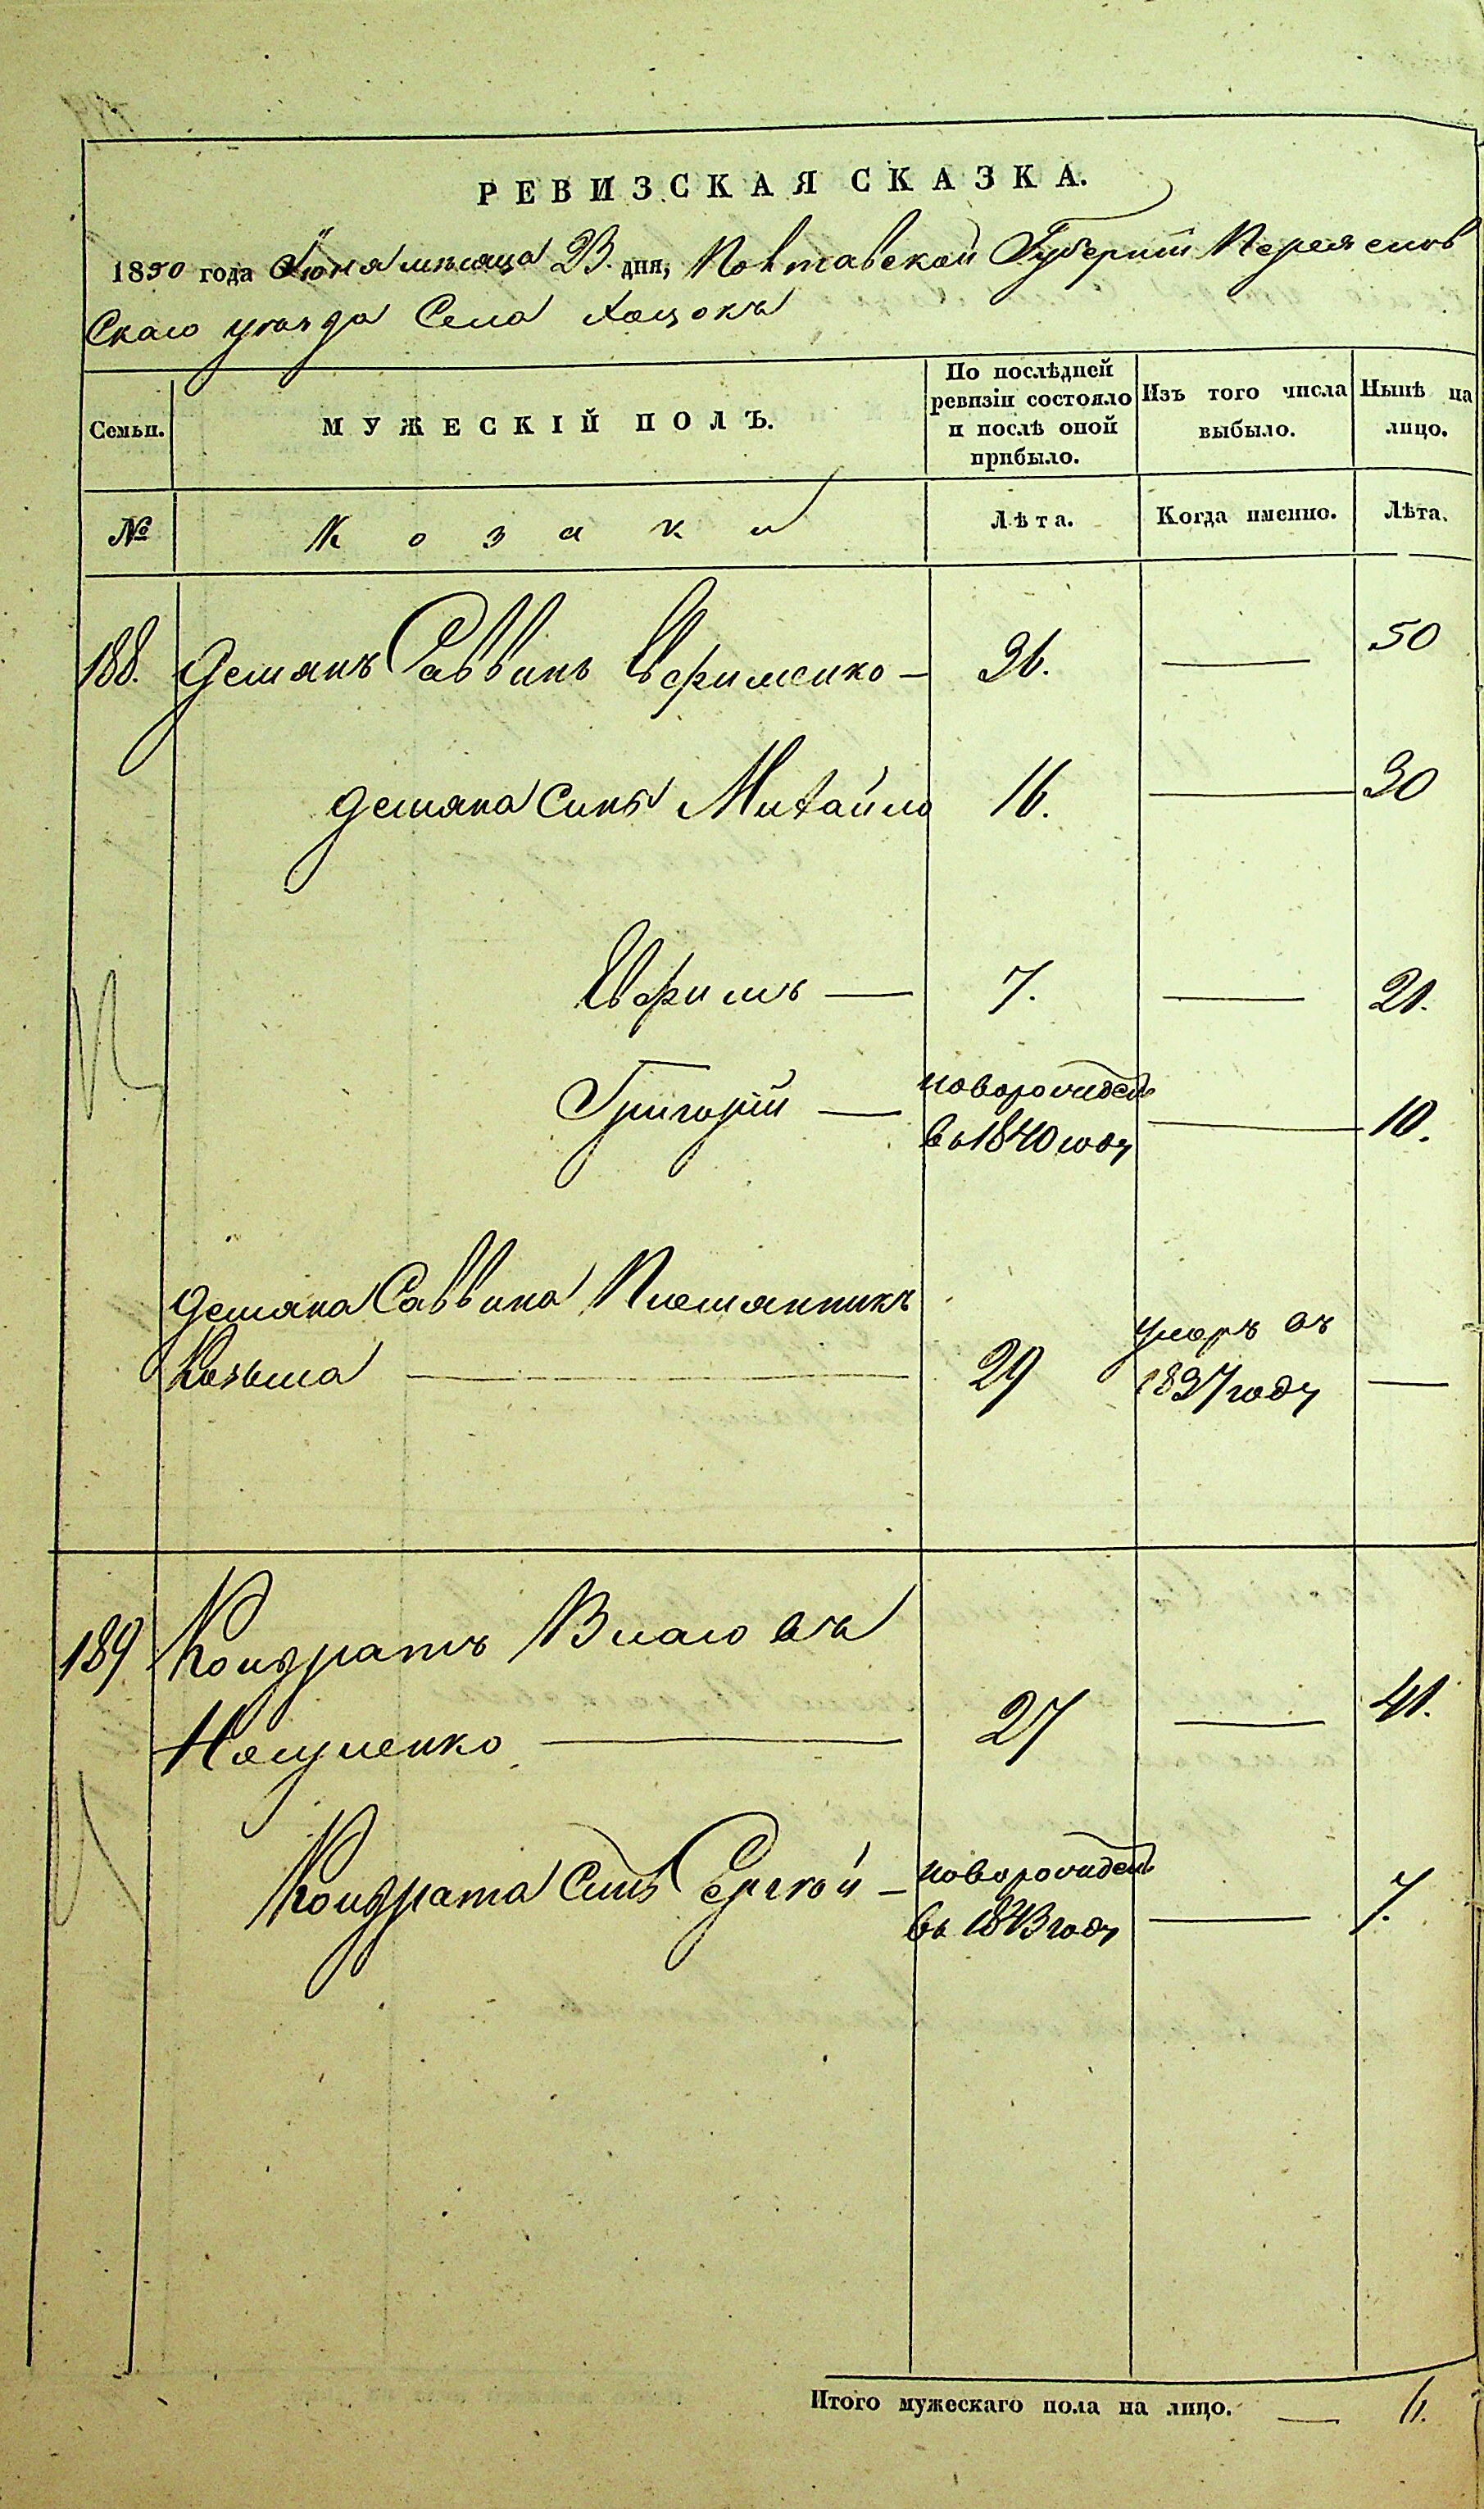 РЕВИЗСКАЯ СКАЗКА.
1850 года Іюня мѣсяца 23. дня, Полтавской Губерніи Переяслов
Скаго уѣзда Села Хоцокъ
Семьи.
МУЖЕСКІЙ ПОЛЪ.
По послѣдней ревизіи состояло и послѣ оной прибыло.
Изъ того числа выбыло.
Нынѣ на лицо.
№
Козаки
Лѣта.
Когда именно.
Лѣта.
188. Демянъ Саввинъ Евфименко — 36. — 50
Демяна Синъ Михайло 16. — 30
Евфимъ — 7. — 21.
Григорій — новорожден
въ 1840 году — 10.
Демяна Саввина Племянникъ
Козьма — 29 умеръ въ
1837 году —
189 Кондратъ Власовъ
27 — 41.
Кондрата Синъ Сергѣй — новорожден
въ 1843 году — 7.
Итого мужескаго пола на лицо. — 6.